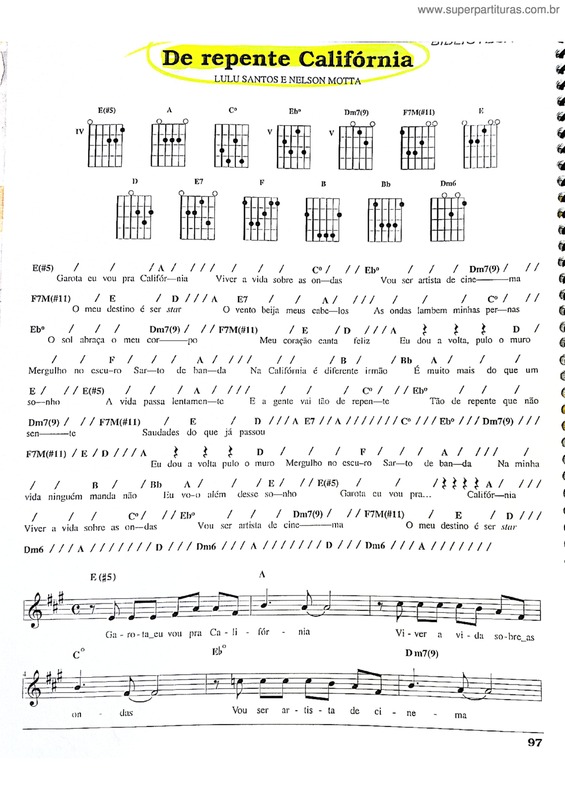 www.superpartituras.com.br
De repente Califórnia
LULU SANTOS E NELSON MOTTA
E(#5) A C° Eb° Dm7(9) F7M(#11) E
IV V V
D E7 F B Bb Dm6
E(#5) / / / A / / / / / / / C° / / / Eb° / / / Dm7(9) / / /
Garota eu vou pra Califór—nia Viver a vida sobre as on—das Vou ser artista de cine———ma
F7M(#11) / E / D / / / A E7 / A / / / / / / / C° /
O meu destino é ser star O vento beija meus cabe—los As ondas lambem minhas per—nas
Eb° / / / Dm7(9) / / / F7M(#11) / E / D / / / A D /
O sol abraça o meu cor———po Meu coração canta feliz Eu dou a volta, pulo o muro
/ / F / / / A / / / / / B / / / Bb A / /
Mergulho no escu—ro Sar—to de ban—da Na Califórnia é diferente irmão É muito mais do que um
E / / / E(#5) / / / A / / / / / / / C° / / / Eb° / / /
so—nho A vida passa lentamen—te E a gente vai tão de repen—te Tão de repente que não
Dm7(9) / / / F7M(#11) / E / D / / / A E7 / / A / / / / / / / C° / / / Eb° / / / Dm7(9) / / /
sen———te Saudades do que já passou
F7M(#11) / E / D / / / A D / / / F / / / A / / / /
Eu dou a volta pulo o muro Mergulho no escu—ro Sar—to de ban—da Na minha
/ B / / / Bb A / / / E / / / E(#5) / / / A / / /
vida ninguém manda não Eu vo-o além desse so—nho Garota eu vou pra... Califór—nia
/ / / / C° / / / Eb° / / / Dm7(9) / / / F7M(#11) / E / D / / /
Viver a vida sobre as on—das Vou ser artista de cine———ma O meu destino é ser star
Dm6 / / / A / / / / / / / D / / / Dm6 / / / A / / / / / / / D / / / Dm6 / / / A / / / / / / /
E (#5) A
Ga - ro - ta_eu vou pra Ca - li - fór - nia Vi - ver a vi - da so - bre_as
C° Eb° D m7(9)
4
on - das Vou ser ar - tis - ta de ci - ne - ma
97